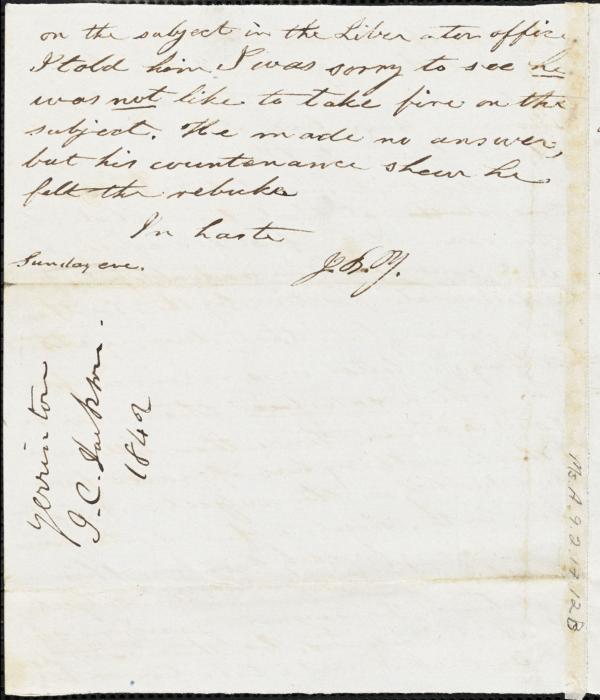 on the subject in the Liberator office
I told him I was sorry to see he
was not like to take fire on the
subject. He made no answer,
but his countenance shew he
felt the rebuke
In haste
Sunday eve.
J. B. Y.
Yerrinton
J. C. Jackson.
1842
Ms. A. 9. 2. 17. 12B